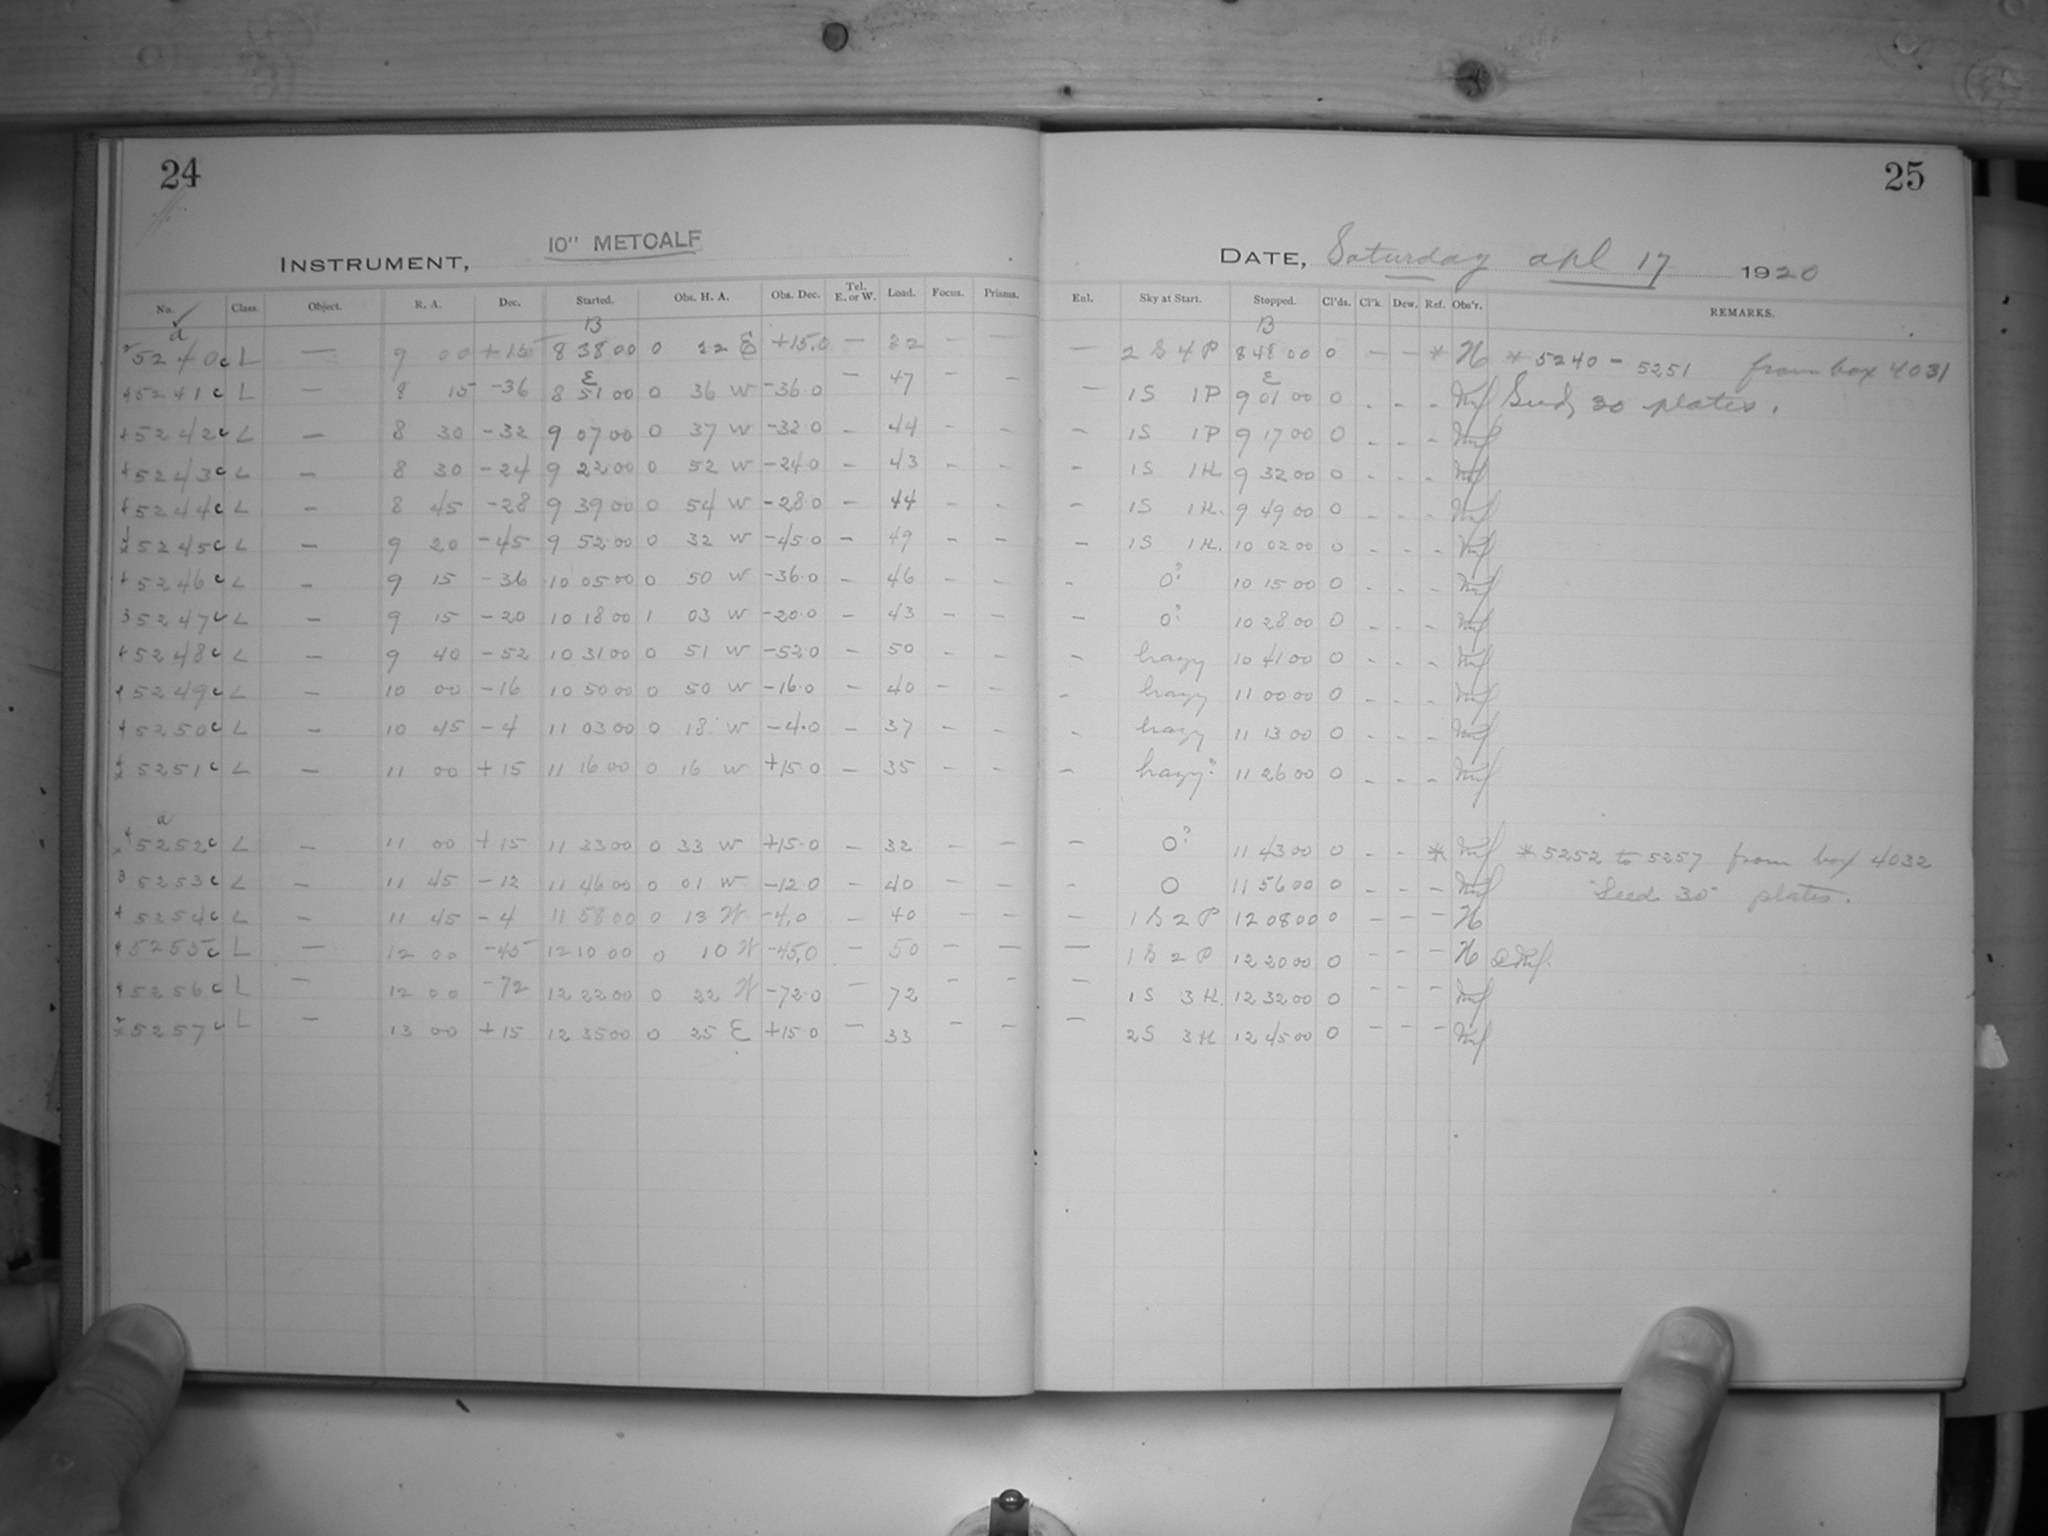 24
25
INSTRUMENT, 10" METCALF
DATE, Saturday apl 17 1920
No. Class. Object. R. A. Dec. Started. Obs. H. A. Obs. Dec. Tel. E. or W. Load. Focus. Prisms. Enl. Sky at Start. Stopped. Cl'ds. Cl'k. Dew. Ref. Obs'r. REMARKS.
a B B
5240c L — 9 00 +15 8 38 00 0 22 E +15.0 — 32 — — — 2 S 4 P 8 48 00 0 — — * H * 5240 - 5251 from box 4031
E E
5241c L — 8 15 -36 8 51 00 0 36 W -36.0 — 47 - - — 1S 1P 9 01 00 0 - - - Seed 30 plates.
5242c L — 8 30 -32 9 07 00 0 37 W -32.0 - 44 - - - 1S 1P 9 17 00 0 - - -
5243c L — 8 30 -24 9 22 00 0 52 W -24.0 - 43 - - - 1S 1H 9 32 00 0 - - -
5244c L - 8 45 -28 9 39 00 0 54 W -28.0 - 44 - - - 1S 1H. 9 49 00 0 - - -
5245c L - 9 20 -45 9 52 00 0 32 W -45.0 - 49 - - - 1S 1H. 10 02 00 0 - - -
5246c L - 9 15 -36 10 05 00 0 50 W -36.0 - 46 - - - 0? 10 15 00 0 - - -
5247c L - 9 15 -20 10 18 00 1 03 W -20.0 - 43 - - - 0? 10 28 00 0 - - -
5248c L - 9 40 -52 10 31 00 0 51 W -52.0 - 50 - - - hazy 10 41 00 0 - - -
5249c L - 10 00 -16 10 50 00 0 50 W -16.0 - 40 - - - hazy 11 00 00 0 - - -
5250c L - 10 45 -4 11 03 00 0 18 W -4.0 - 37 - - - hazy 11 13 00 0 - - -
5251c L - 11 00 +15 11 16 00 0 16 W +15.0 - 35 - - - hazy? 11 26 00 0 - - -
a
5252c L - 11 00 +15 11 33 00 0 33 W +15.0 - 32 - - - 0? 11 43 00 0 - - * * 5252 to 5257 from box 4032
5253c L - 11 45 -12 11 46 00 0 01 W -12.0 - 40 - - - 0 11 56 00 0 - - - "Seed 30" plates.
5254c L - 11 45 -4 11 58 00 0 13 W -4.0 - 40 - - - 1 S 2 P 12 08 00 0 - - - H
5255c L — 12 00 -45 12 10 00 0 10 W -45.0 - 50 - — — 1 S 2 P 12 20 00 0 - - - H
5256c L — 12 00 -72 12 22 00 0 22 W -72.0 - 72 - - — 1S 3H. 12 32 00 0 - - -
5257c L — 13 00 +15 12 35 00 0 25 E +15.0 — 33 - - — 2S 3H 12 45 00 0 - - -